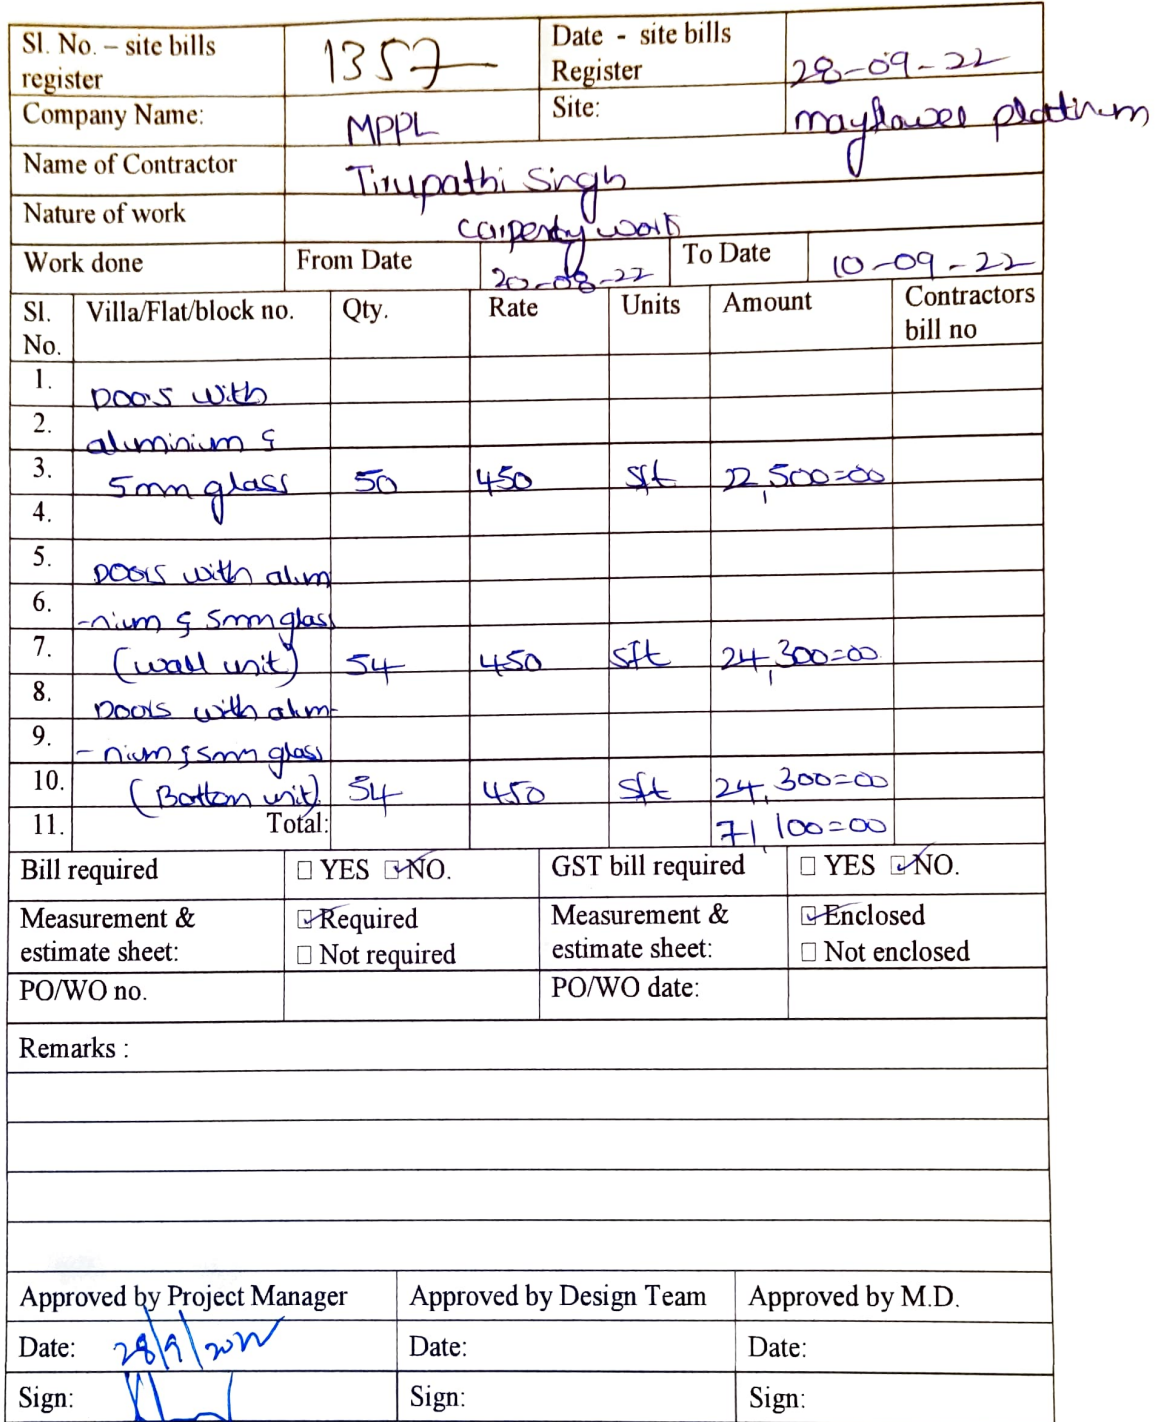 Sl. No. – site bills register 1357 Date - site bills Register 28-09-22
Company Name: MPPL Site: mayflower platinum
Name of Contractor Tirupathi Singh
Nature of work carpentry work
Work done From Date 20-08-22 To Date 10-09-22
Sl. No. Villa/Flat/block no. Qty. Rate Units Amount Contractors bill no
1. Doors with
2. aluminium &
3. 5mm glass 50 450 sft 22,500=00
4.
5. Doors with alum
6. -nium & 5mm glass
7. (wall unit) 54 450 sft 24,300=00
8. Doors with alum-
9. -nium & 5mm glass
10. (Bottom unit) 54 450 sft 24,300=00
11. Total: 71,100=00
Bill required ☐ YES ☑ NO. GST bill required ☐ YES ☑ NO.
Measurement & estimate sheet: ☑ Required ☐ Not required Measurement & estimate sheet: ☑ Enclosed ☐ Not enclosed
PO/WO no. PO/WO date:
Remarks :
Approved by Project Manager Approved by Design Team Approved by M.D.
Date: 28/9/2022 Date: Date:
Sign: Sign: Sign: